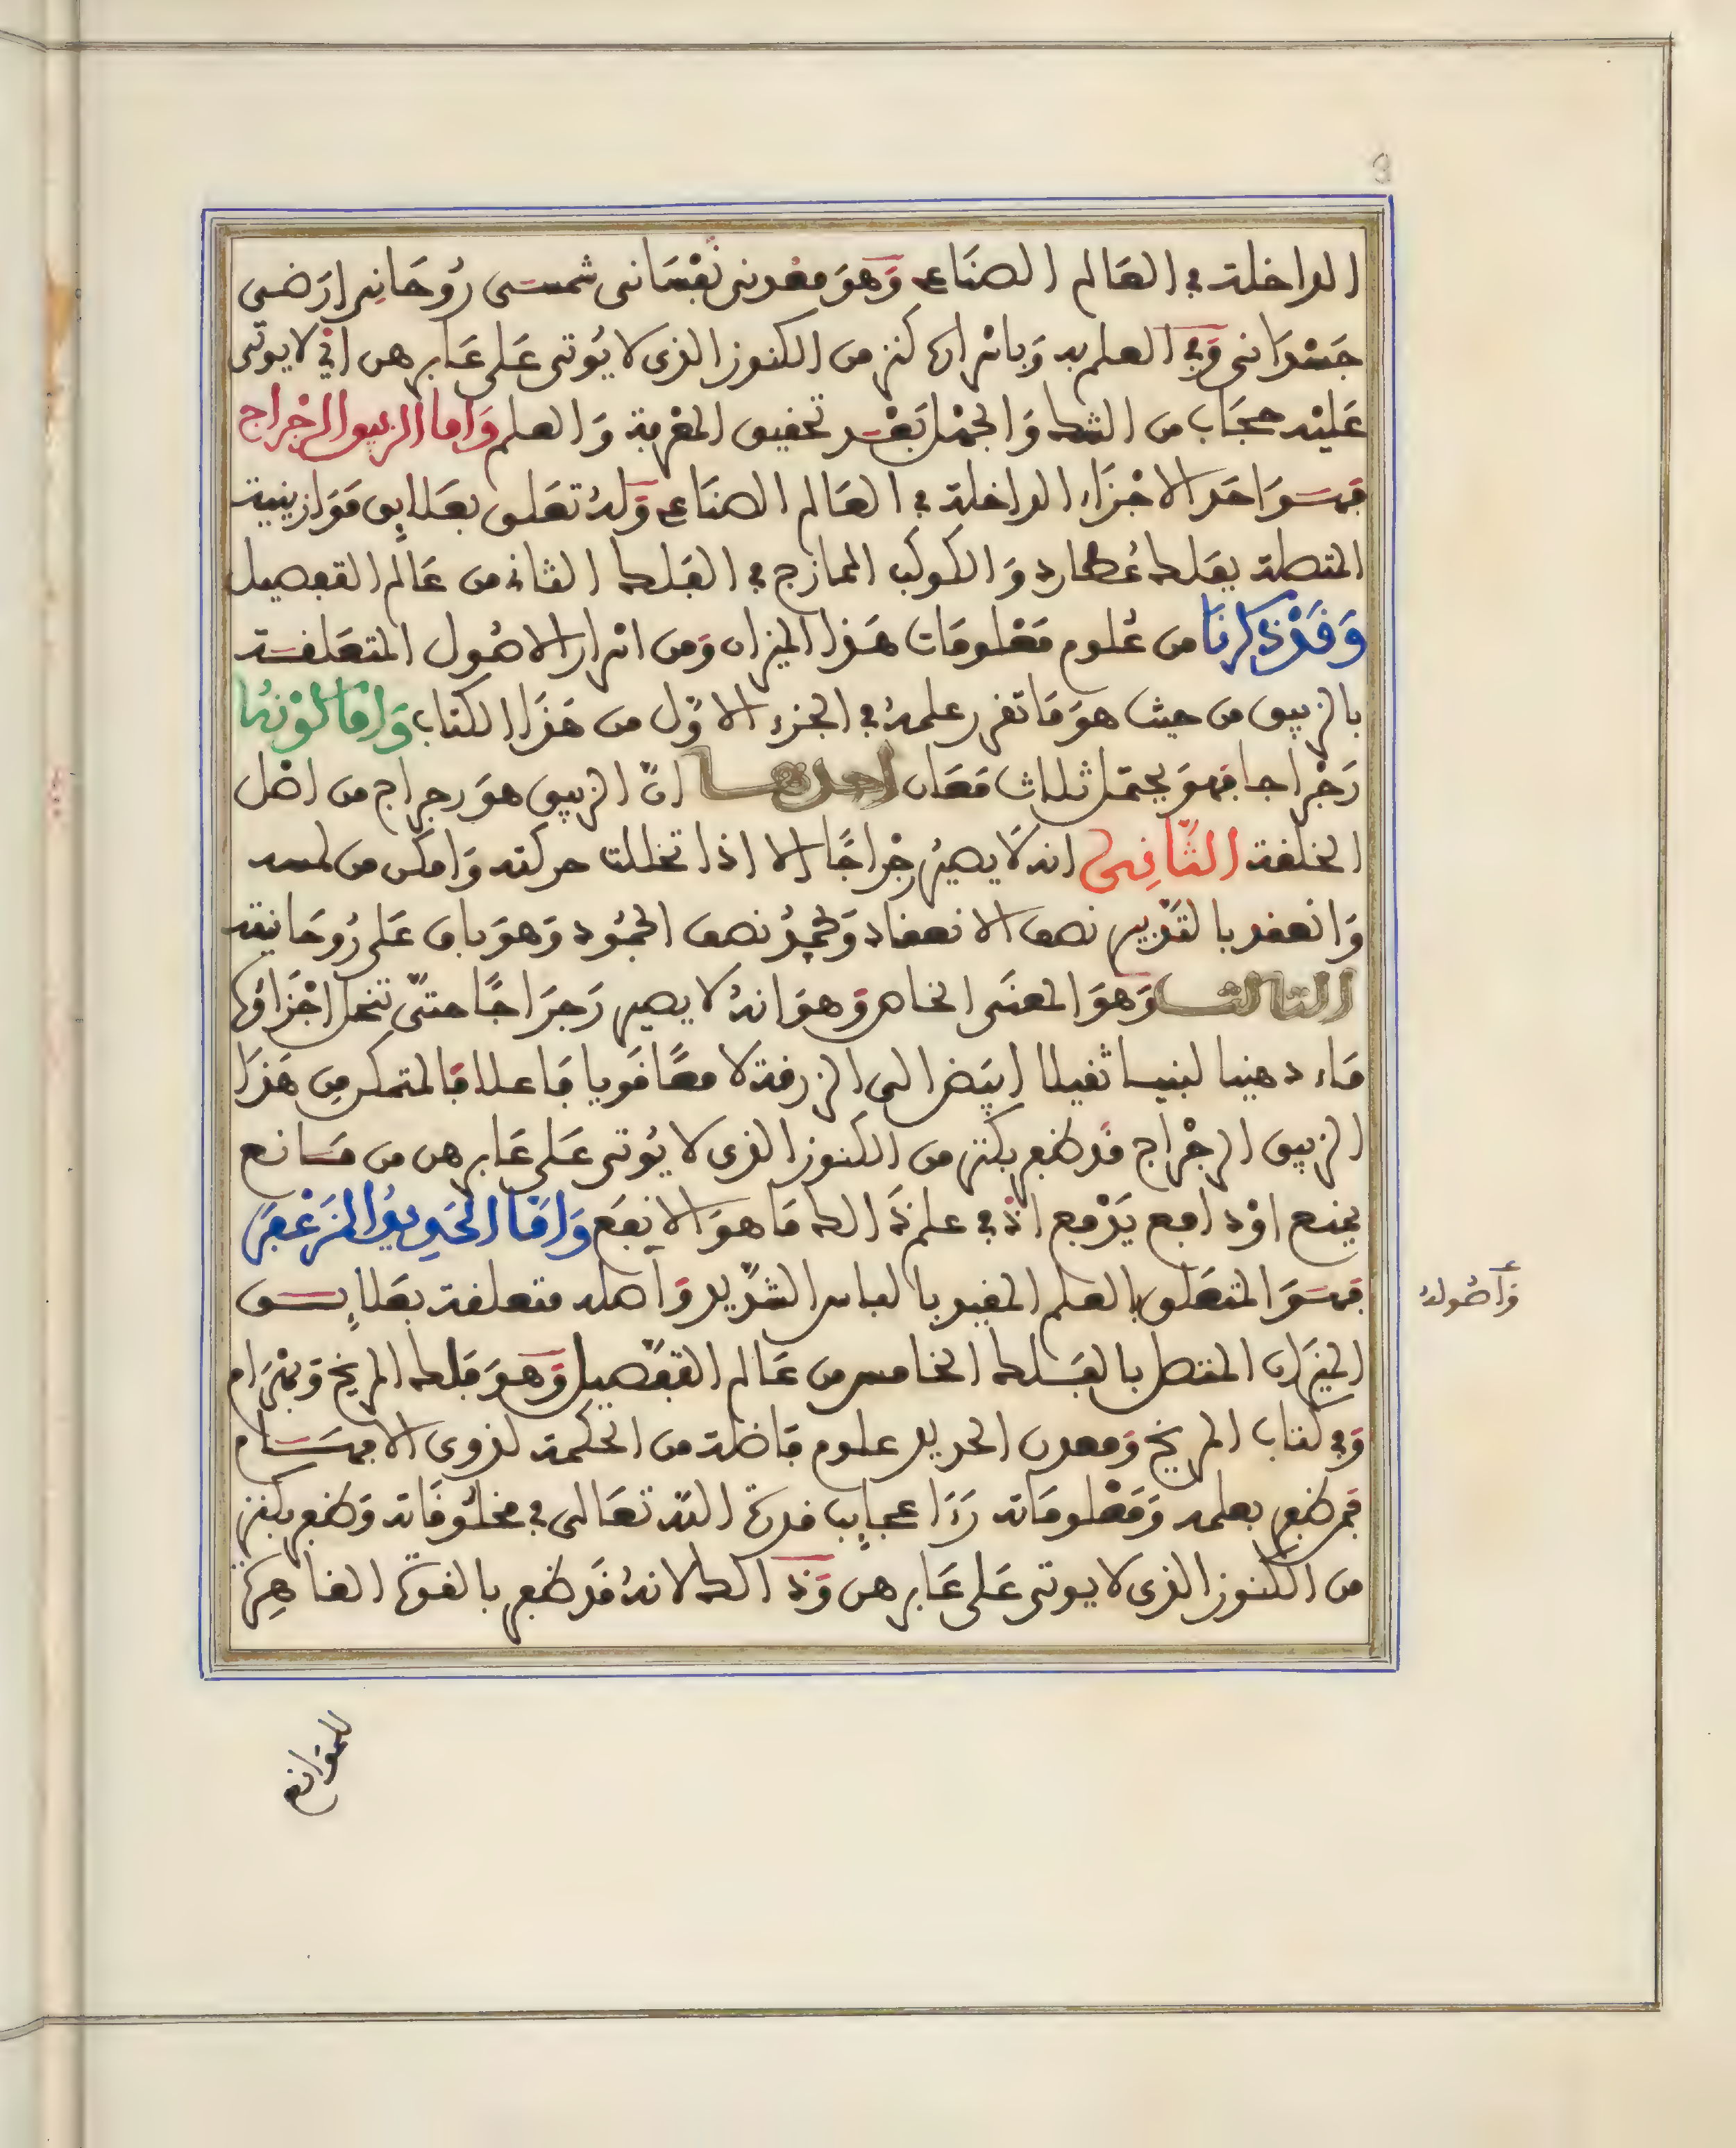 الداخلة في العالم الصناعي وَهوَ معدني نَفْسَاني شمسي رُوحَاني ارَضي
جَسْدَاني وَفي العلم به وَباسراره كنز من الكنوز الذي لا يُوتى عَلى عَابر هن اذ لا يوتى
عَليْه حجَاب من الشك وَالجهْل بَعْد تحقيق المعْرفة وَالعلم وَاما الزيبق الرجْراج
فهسوَ احَد الاجْزَاء الداخلة في العَالم الصنَاعي وَلهُ تعَلق بعَلايق مَوَازينية
المتصلة بفَلك عُطارد وَالكوكب الممازج في الفَلك الثاني من عَالم التفصيل
وَقَدْ ذكرنَا من عُلوم مَعْلومَات هَذا الميزان وَمن اسْرار الاصُول المتعَلقة
بالزيبق من حيث هوَ مَا تقرر علمهُ في الجزء الاوّل من هَذَا الكتاب وَامَا كوْنهُ
رَجْراجا فهوَ يحتمَل ثلاث مَعَان احدها انّ الزيبق هوَ رجراج من اصْل
الخلقة الثّانِي انه لَا يصيُر رجْراجًا إلا اذا تخللت حركته وَامكن من لمسه
وَانعقد بالتدْبير نصف الانعقاد وَجمدُ نصف الجمُود وَهوَ باق عَلى رُوحَانيته
الثالث وَهوَ المعنَى الخاص وَهوَ انهُ لا يصير رَجرَاجًا حتىّ تنحل اجْزَاوُه
مَاء دهنيا لبنيا ثقيلا ابيَض الى الزرقة لامعًا قَويا فَاعلا فَالمتمكن مِن هَذَا
الزيبق الرجْراج قَد ظفر بكنز من الكنوز الذي لا يُوتى عَلى عَابر هن من مَانع
يمنع اوْ دافع يَدْفع اذ في علم ذَالك مَا هوَ الانفَع وَامَّا الحَدِيدُ المزَعْفَر
فهسوَ المتعَلق بالعلم المقيد بالباس الشدّيد وَاهله متعلقة بعَلايسق
الميزان المتصل بالفَلك الخامس من عَالم التفصّيل وَهوَ فَلك المريخ وَبهْرَام
وَفي كتاب المريخ وَمعدن الحديد علوم فَاضلة من الحكمة لذوي الافهَام
فمن ظفر بعلمه وَمَعْلومَاته رَءَا عجايب قدرة اللّه تعَالى في مخلُوقَاته وَظفر بكنز
من الكنوز الذي لا يوتى عَلى عَابر هن وَذَالك لانهُ قَد ظفر بالقوة القاهِرة
وَأصُوله
للموَانع